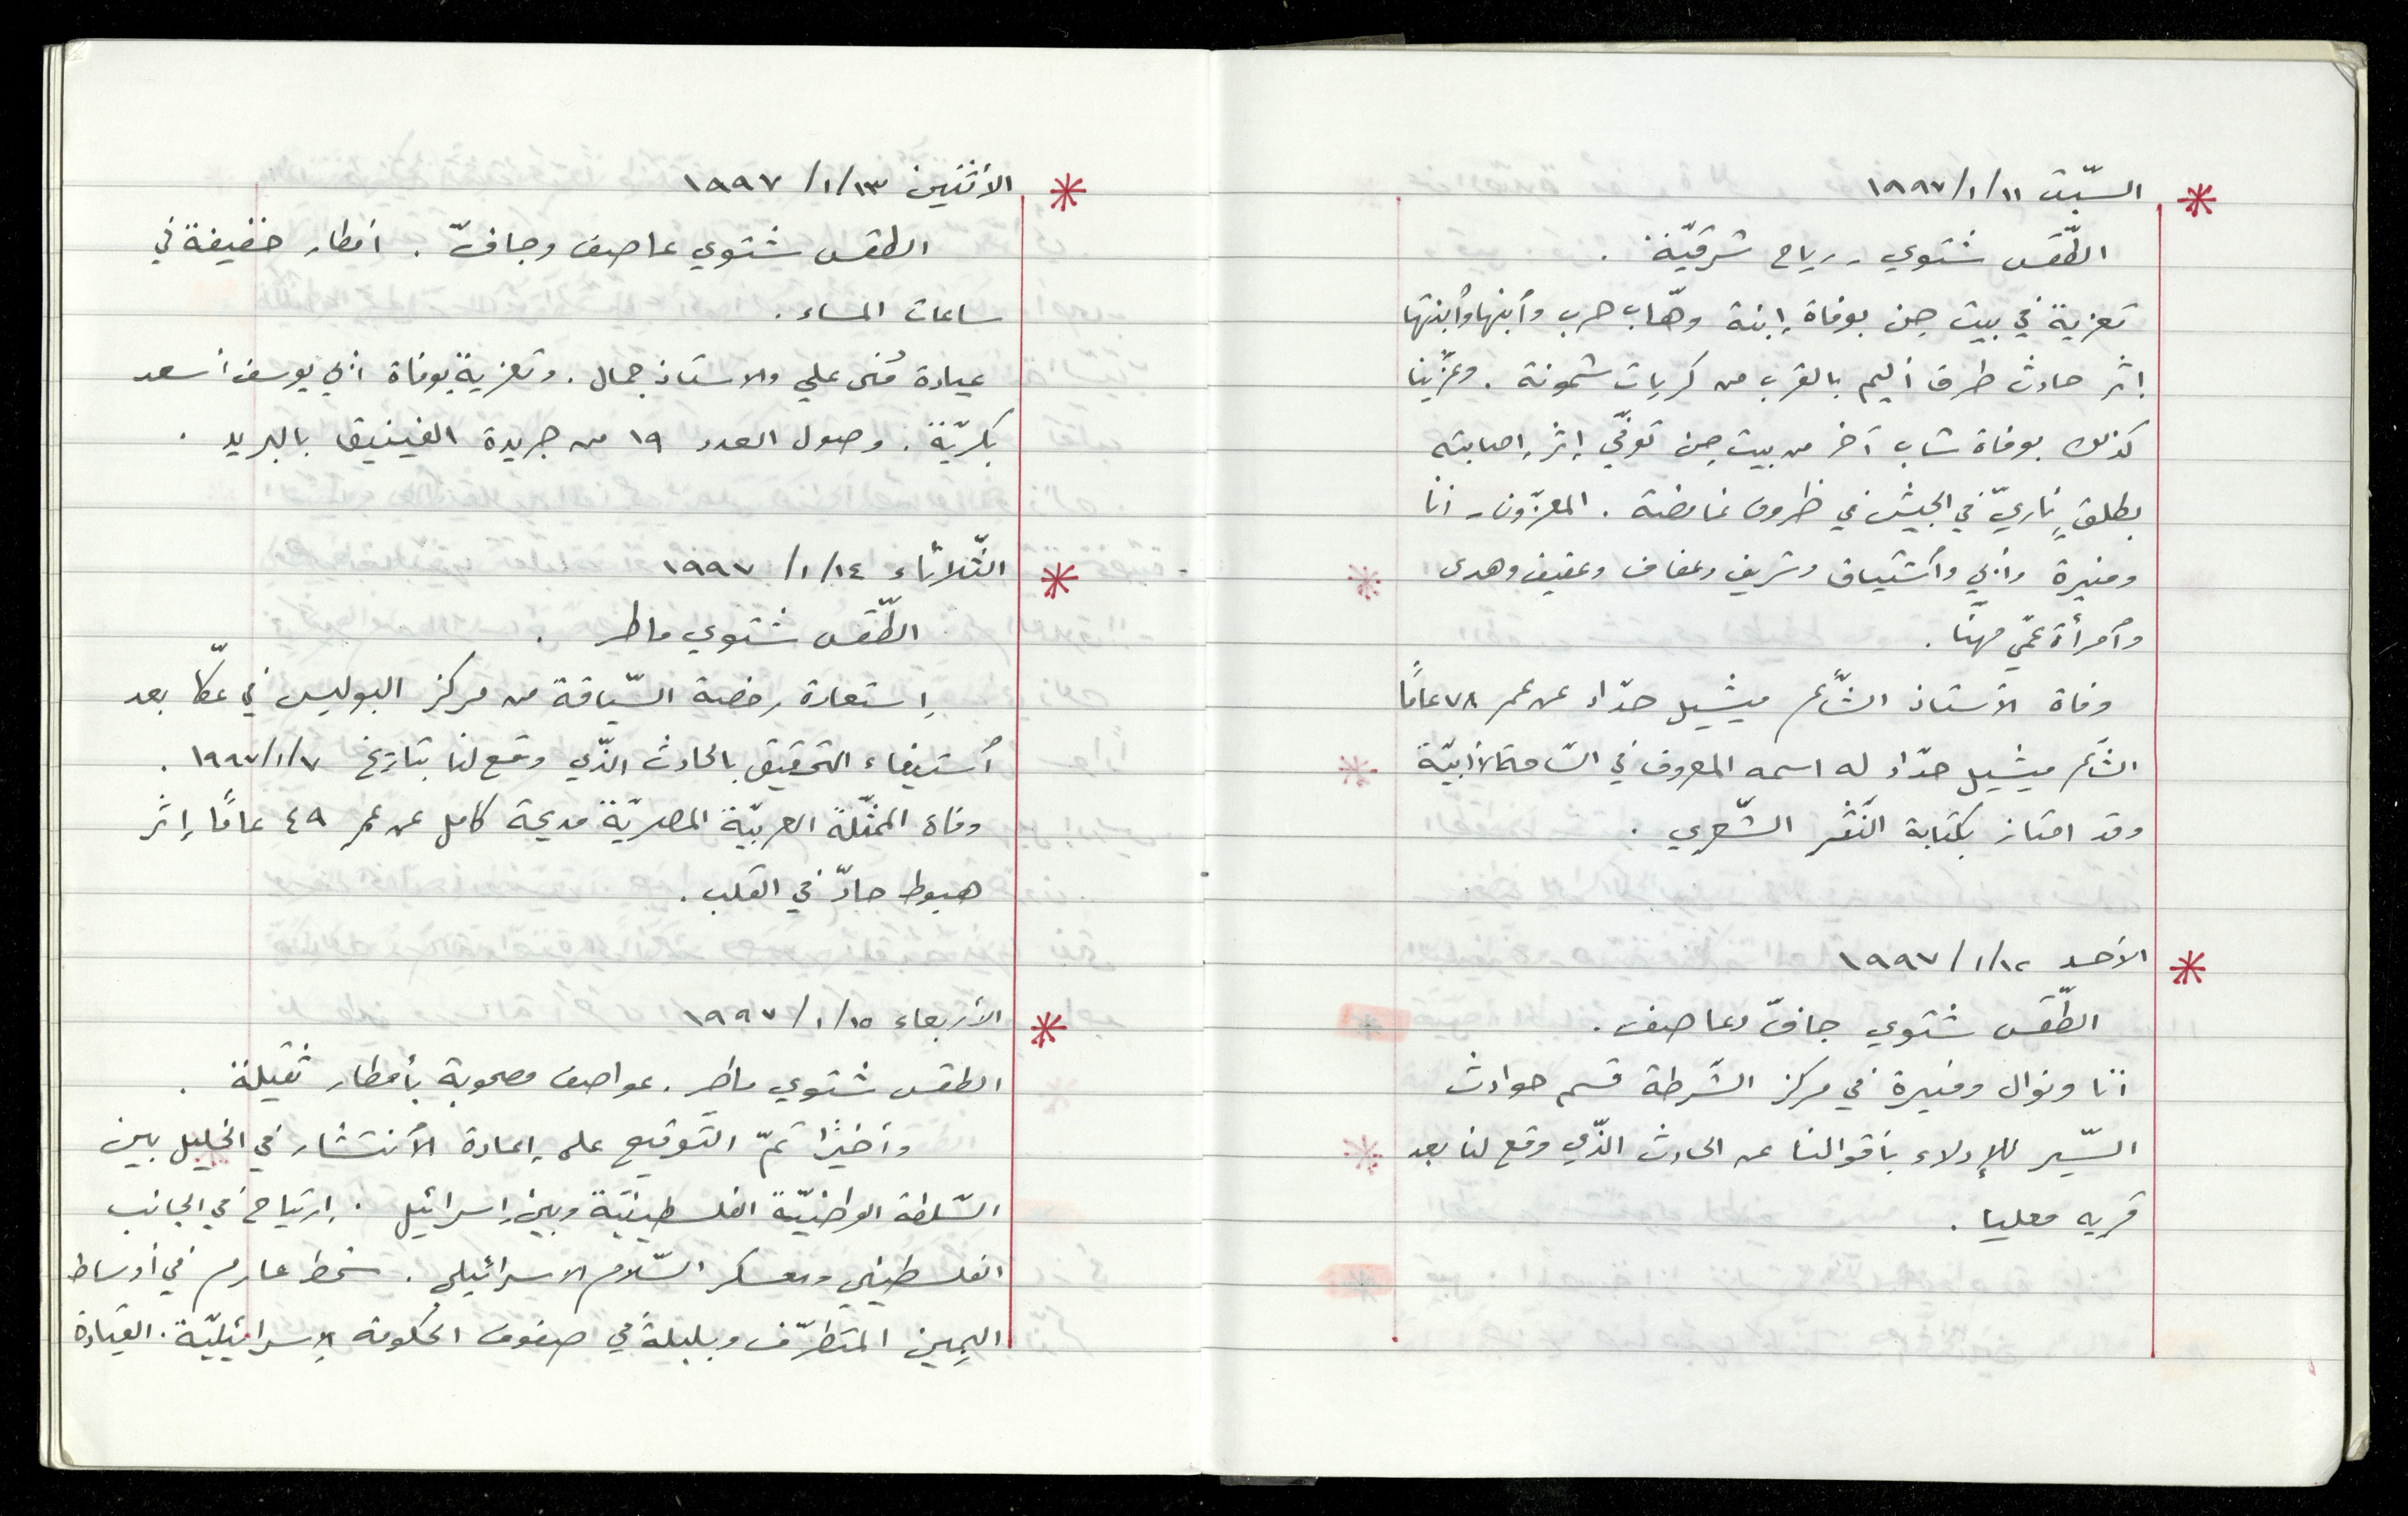 السّبت ١١/١/١٩٩٧
الطّقس شتوي - رياح شرقيّة .
تعزية في بيت جن بوفاة إبنة وهّاب حرب وأبنها وأبنتها
اثر حادث طرق أليم بالقرب من كريات شمونة . وعزّينا
كذلك بوفاة شاب آخر من بيت جن توفّي إثر إصابته
بطلقٍ ناريّ في الجيش في ظروف غامضة . المعزّون - أنا
ومنيرة وأبي وأشتياق وشريف وعفاف وعفيف وهدى
وأمرأة عمّي مهنّا .
وفاة الأستاذ الشّاعر ميشيل حدّاد عن عمر ٧٨ عامًا
الشّاعر ميشيل حدّاد له اسمه المعروف في السّاحة الأدبيّة
وقد امتاز بكتابة النّثر الشّعري .
الأحد ١٢/١/١٩٩٧
الطّقس شتوي جافّ وعاصف .
أنا ونوال ومنيرة في مركز الشّرطة قسم حوادث
السّير للإدلاء بأقوالنا عن الحادث الّذي وقع لنا بعد
قريه معليا .
الأثنين ١٣/١/١٩٩٧
الطقس شتوي عاصف وجافّ . امطار خفيفة في
ساعات المساء .
عيادة مُنى علي والاستاذ جمال . وتعزية بوفاة أبي يوسف أسعد
بكريّة . وصول العدد ١٩ من جريدة الفينيق بالبريد .
الثّلاثاء ١٤/١/١٩٩٧
الطّقس شتوي ماطر .
إستعادة رخصة السّياقة من مركز البوليس في عكّا بعد
أستيفاء التحقيق بالحادث الّذي وقع لنا بتاريخ ٧/١/١٩٩٧ .
وفاة الممثّلة العربيّة المصريّة مديحة كامل عن عمر ٤٩ عامًا إثر
هبوط حادّ في القلب .
الأربعاء ١٥/١/١٩٩٧
الطقس شتوي ماطر . عواصف مصحوبة بأمطار ثقيلة .
وأخيرًا تمّ التّوقيع على إعادة الأنتشار في الخليل بين
السّلطة الوطنيّة الفلسطينيّة وبين إسرائيل . إرتياح في الجانب
الفلسطيني ومعسكر السّلام الاسرائيلي . سخط عارم في أوساط
اليمين المتطرّف وبلبلة في صفوف الحكومة الإسرائيليّة . القيادة